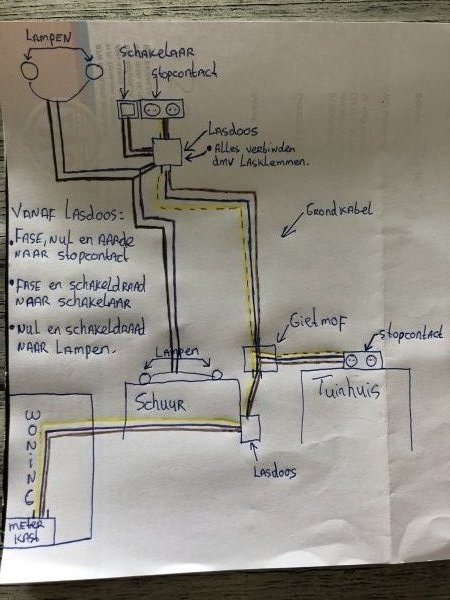 LAMPEN
SCHAKELAAR
STOPCONTACT
LASDOOS
• ALLES VERBINDEN
DMV LASKLEMMEN.
VANAF LASDOOS:
• FASE, NUL EN AARDE
NAAR STOPCONTACT
GRONDKABEL
• FASE EN SCHAKELDRAAD
NAAR SCHAKELAAR
• NUL EN SCHAKELDRAAD
NAAR LAMPEN.
GIETMOF
STOPCONTACT
LAMPEN
SCHUUR
TUINHUIS
WONING
LASDOOS
METER
KAST